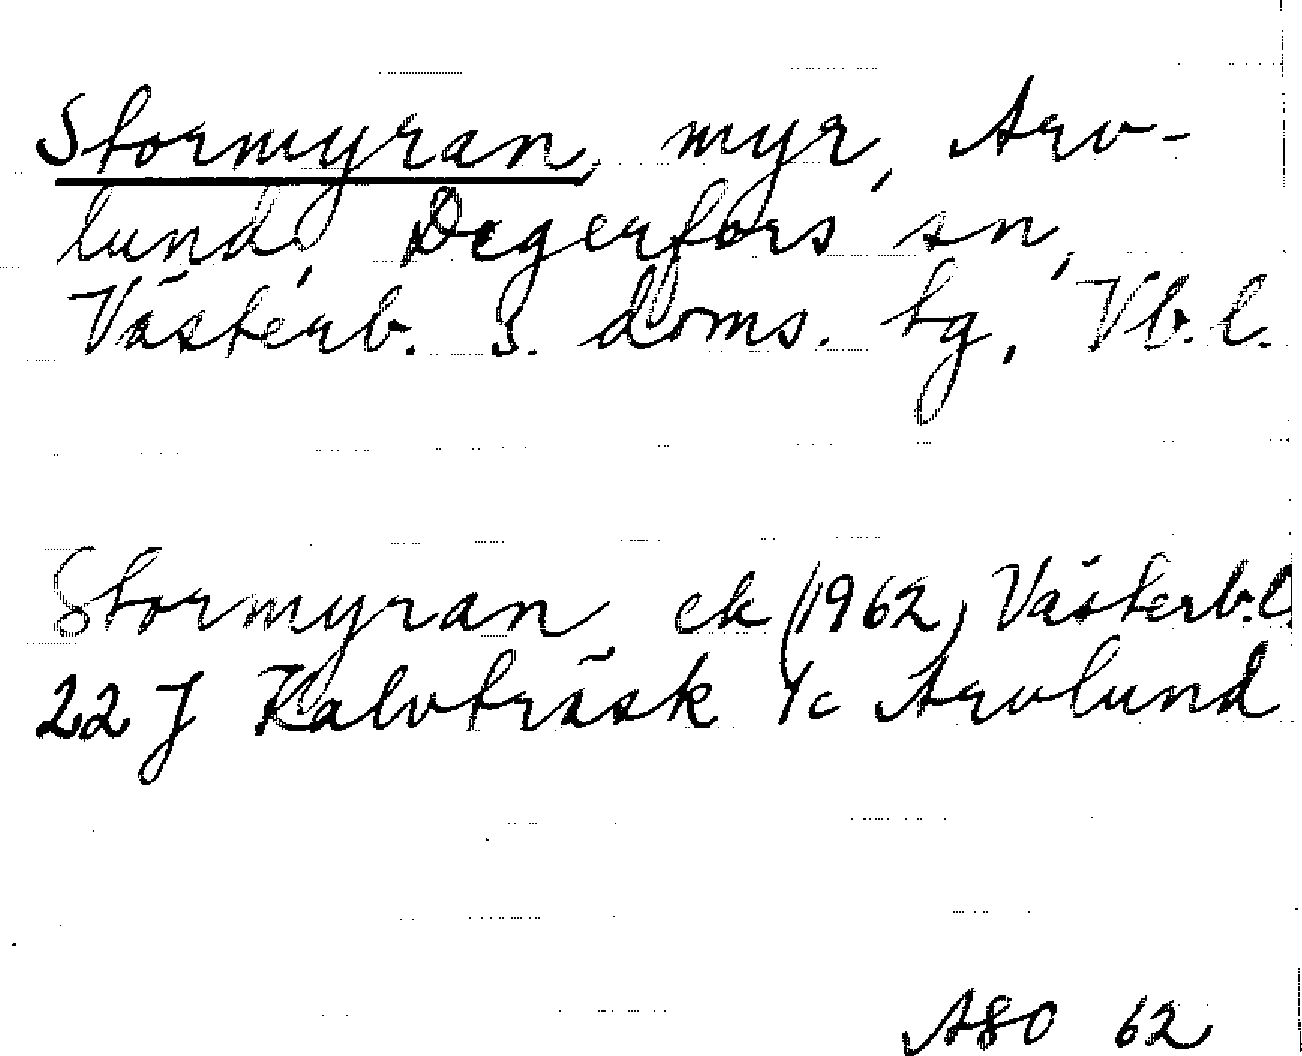 Stormyran, myr, Arv-
lund, Degerfors sn,
Västerb. s. doms. tg, Vb. l.
Stormyran ek (1962) Västerb. l.
22 J Kalvträsk 1c Arvlund
ASO 62